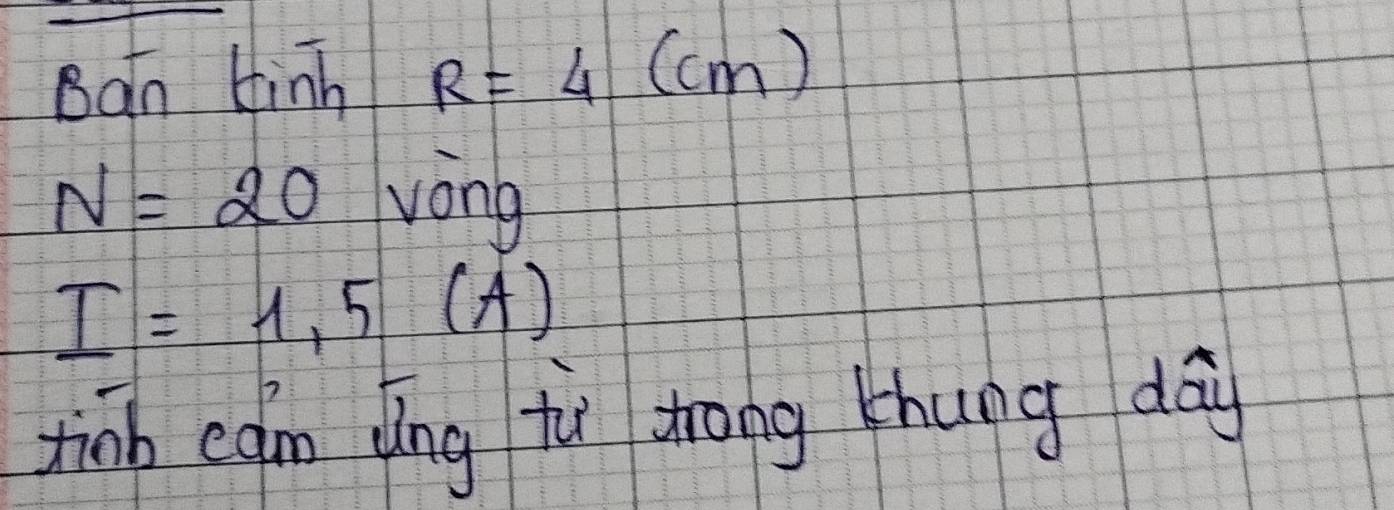 Bán kính R = 4 (cm)
N = 20 vòng
I = 1,5 (A)
tính cảm ứng từ trong khung dây